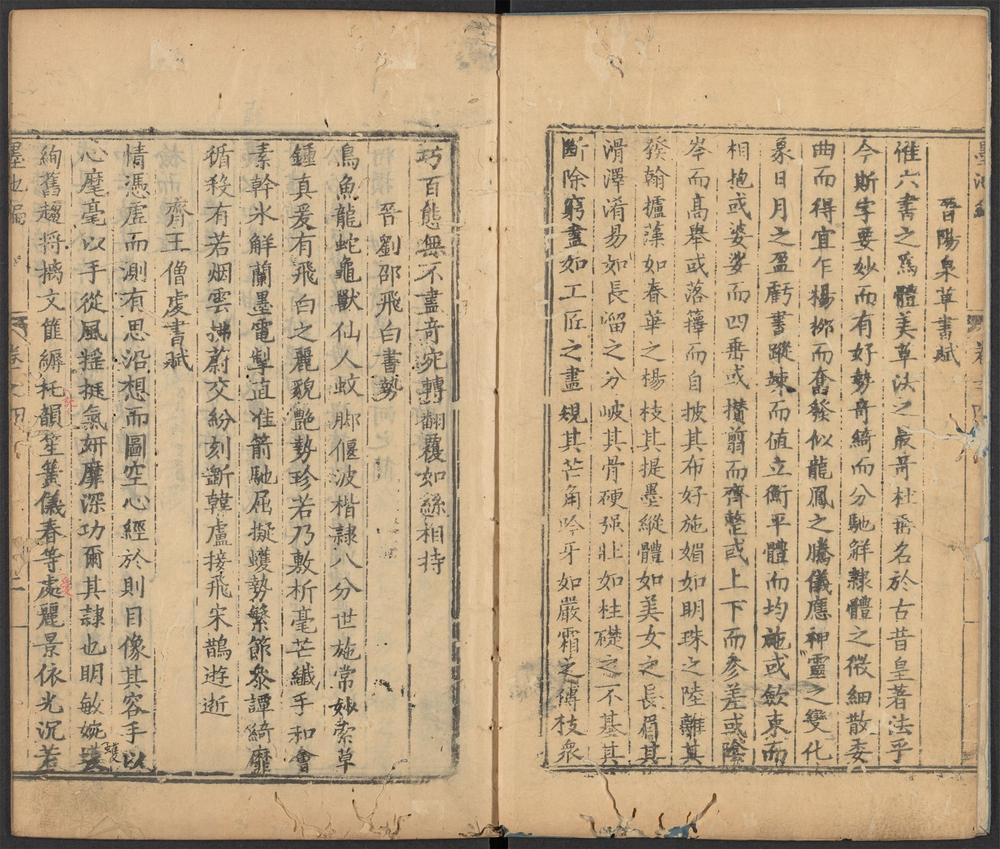 墨池編
卷
晋陽泉草書賦
惟六書之爲體美草法之最竒杜垂名於古昔皇著法乎
今斯字要妙而有好勢竒綺而分馳觧隸體之微細散委
曲而得宜乍楊柳而奮發似龍鳳之騰儀應神靈之變化
象日月之盈虧書蹤竦而值立衡平體而均施或斂束而
相抱或婆娑而四垂或攢剪而齊整或上下而參差或陰
岑而高舉或落籜而自披其布好施媚如明珠之陸離其
發翰攄藻如春華之楊枝其提墨縱體如美女之長眉其
滑澤淆易如長溜之分岐其骨硬强壯如柱礎之不基其
斷除窮盡如工匠之盡規其芒角吟牙如嚴霜之傅枝衆
巧百態無不盡竒宛轉翻覆如絲相持
晉劉邵飛白書勢
鳥魚龍蛇龜獸仙人蚊脚偃波楷隸八分世施常妙索草
鍾真爰有飛白之麗貌艶勢珍若乃敷析毫芒纖手和會
素幹氷解蘭墨電掣直准箭馳屈擬蠖勢繁節叅譚綺靡
循殺有若烟雲拂蔚交紛刻斷韓盧接飛宋鵲遊逝
齊王僧䖍書賦
情憑虛而測有思沿想而圖空心經於則目像其容手以
心麾毫以手從風摇挺氣妍靡深功爾其隷也明敏婉
蠖
絢舊趨將摛文篚縟托韻笙簧儀春等處麗景依光沉若
墨池編
卷之四
二